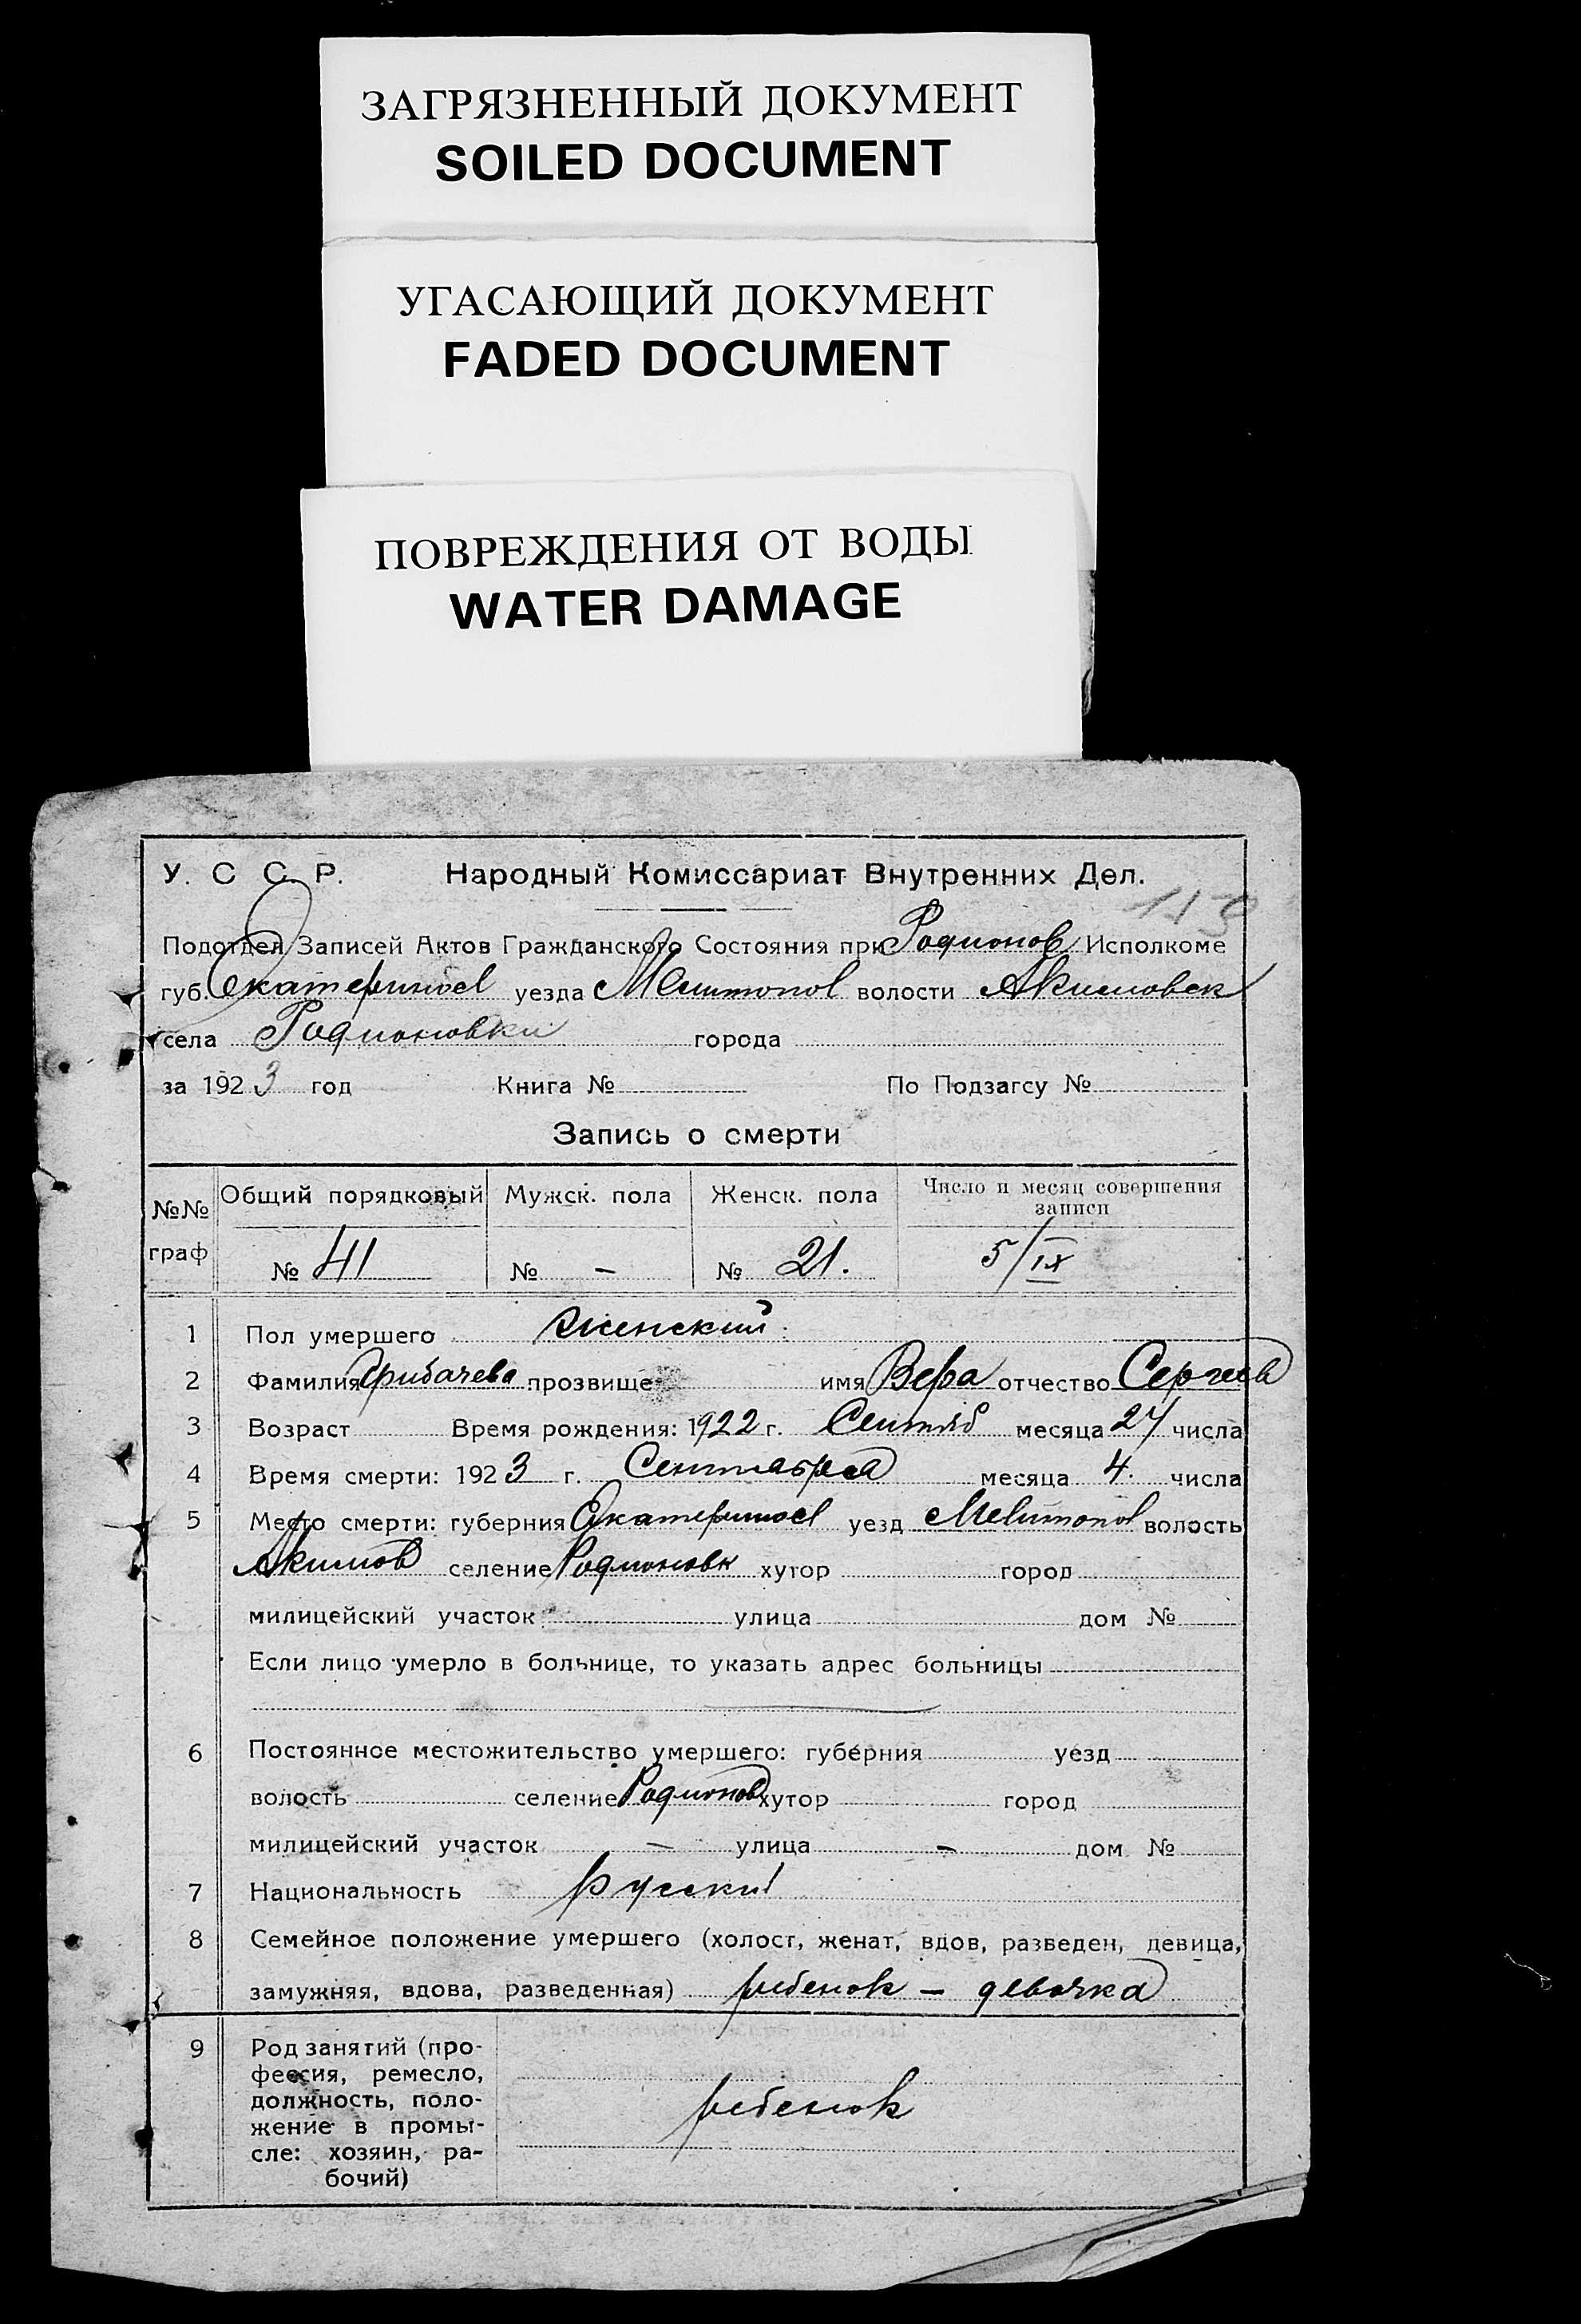 ЗАГРЯЗНЕННЫЙ ДОКУМЕНТ
SOILED DOCUMENT
УГАСАЮЩИЙ ДОКУМЕНТ
FADED DOCUMENT
ПОВРЕЖДЕНИЯ ОТ ВОДЫ
WATER DAMAGE
У. С С. Р. Народный Комиссариат Внутренних Дел.
Подотдел Записей Актов Гражданского Состояния при Родионов Исполкоме
губ. Екатеринос уезда Мелитопол волости Акимовск
села Родионовки города
за 1923 год Книга № По Подзагсу №
Запись о смерти
№№ граф Общий порядковый Мужск. пола Женск. пола Число и месяц совершения записи
№ 41 № – № 21. 5/IX
1 Пол умершего женский
2 Фамилия Грибачева прозвище имя Вера отчество Сергеев
3 Возраст Время рождения: 1922 г. Сентяб месяца 27 числа
4 Время смерти: 1923 г. Сентября месяца 4. числа
5 Место смерти: губерния Екатеринос уезд Мелитопол волость
Акимов селение Родионовк хутор город
милицейский участок улица дом №
Если лицо умерло в больнице, то указать адрес больницы
6 Постоянное местожительство умершего: губерния уезд
волость селение Родионов хутор город
милицейский участок – улица – дом №
7 Национальность русский
8 Семейное положение умершего (холост, женат, вдов, разведен, девица,
замужняя, вдова, разведенная) ребенок – девочка
9 Род занятий (про-
фессия, ремесло,
должность, поло-
жение в промы-
сле: хозяин, ра-
бочий)
ребенок